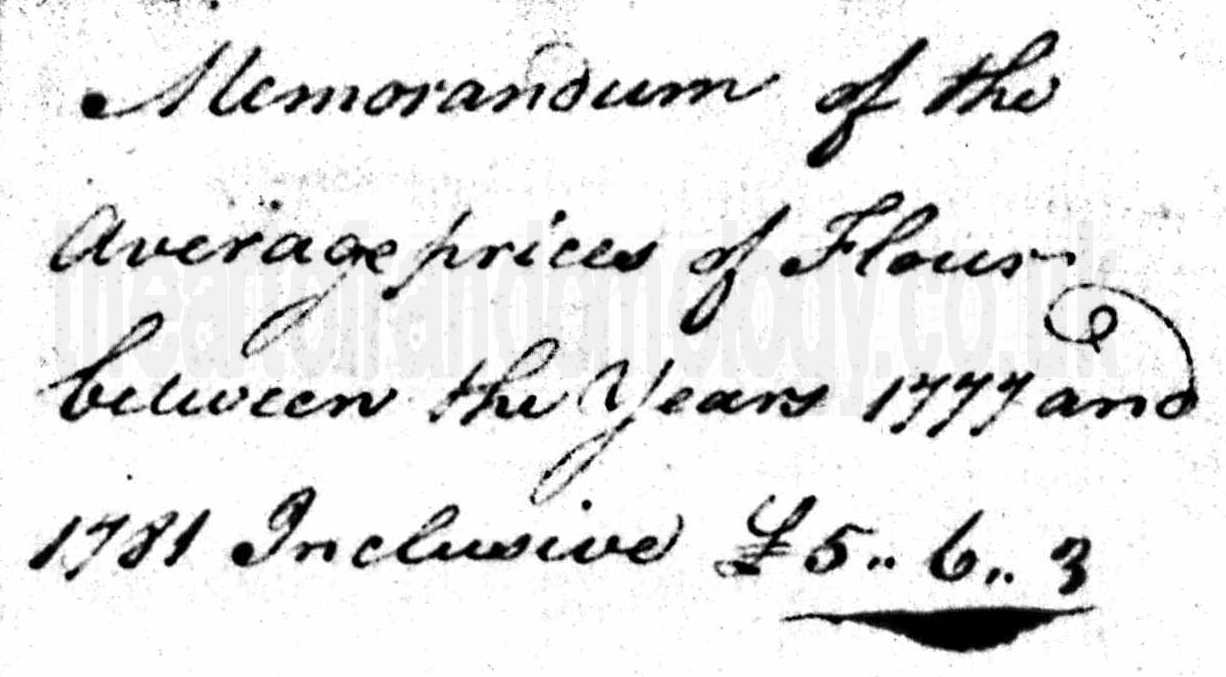 Memorandum of the
Average prices of Flour
between the Years 1777 and
1781 Inclusive £5.. 6.. 3
theartofrandomology.co.uk